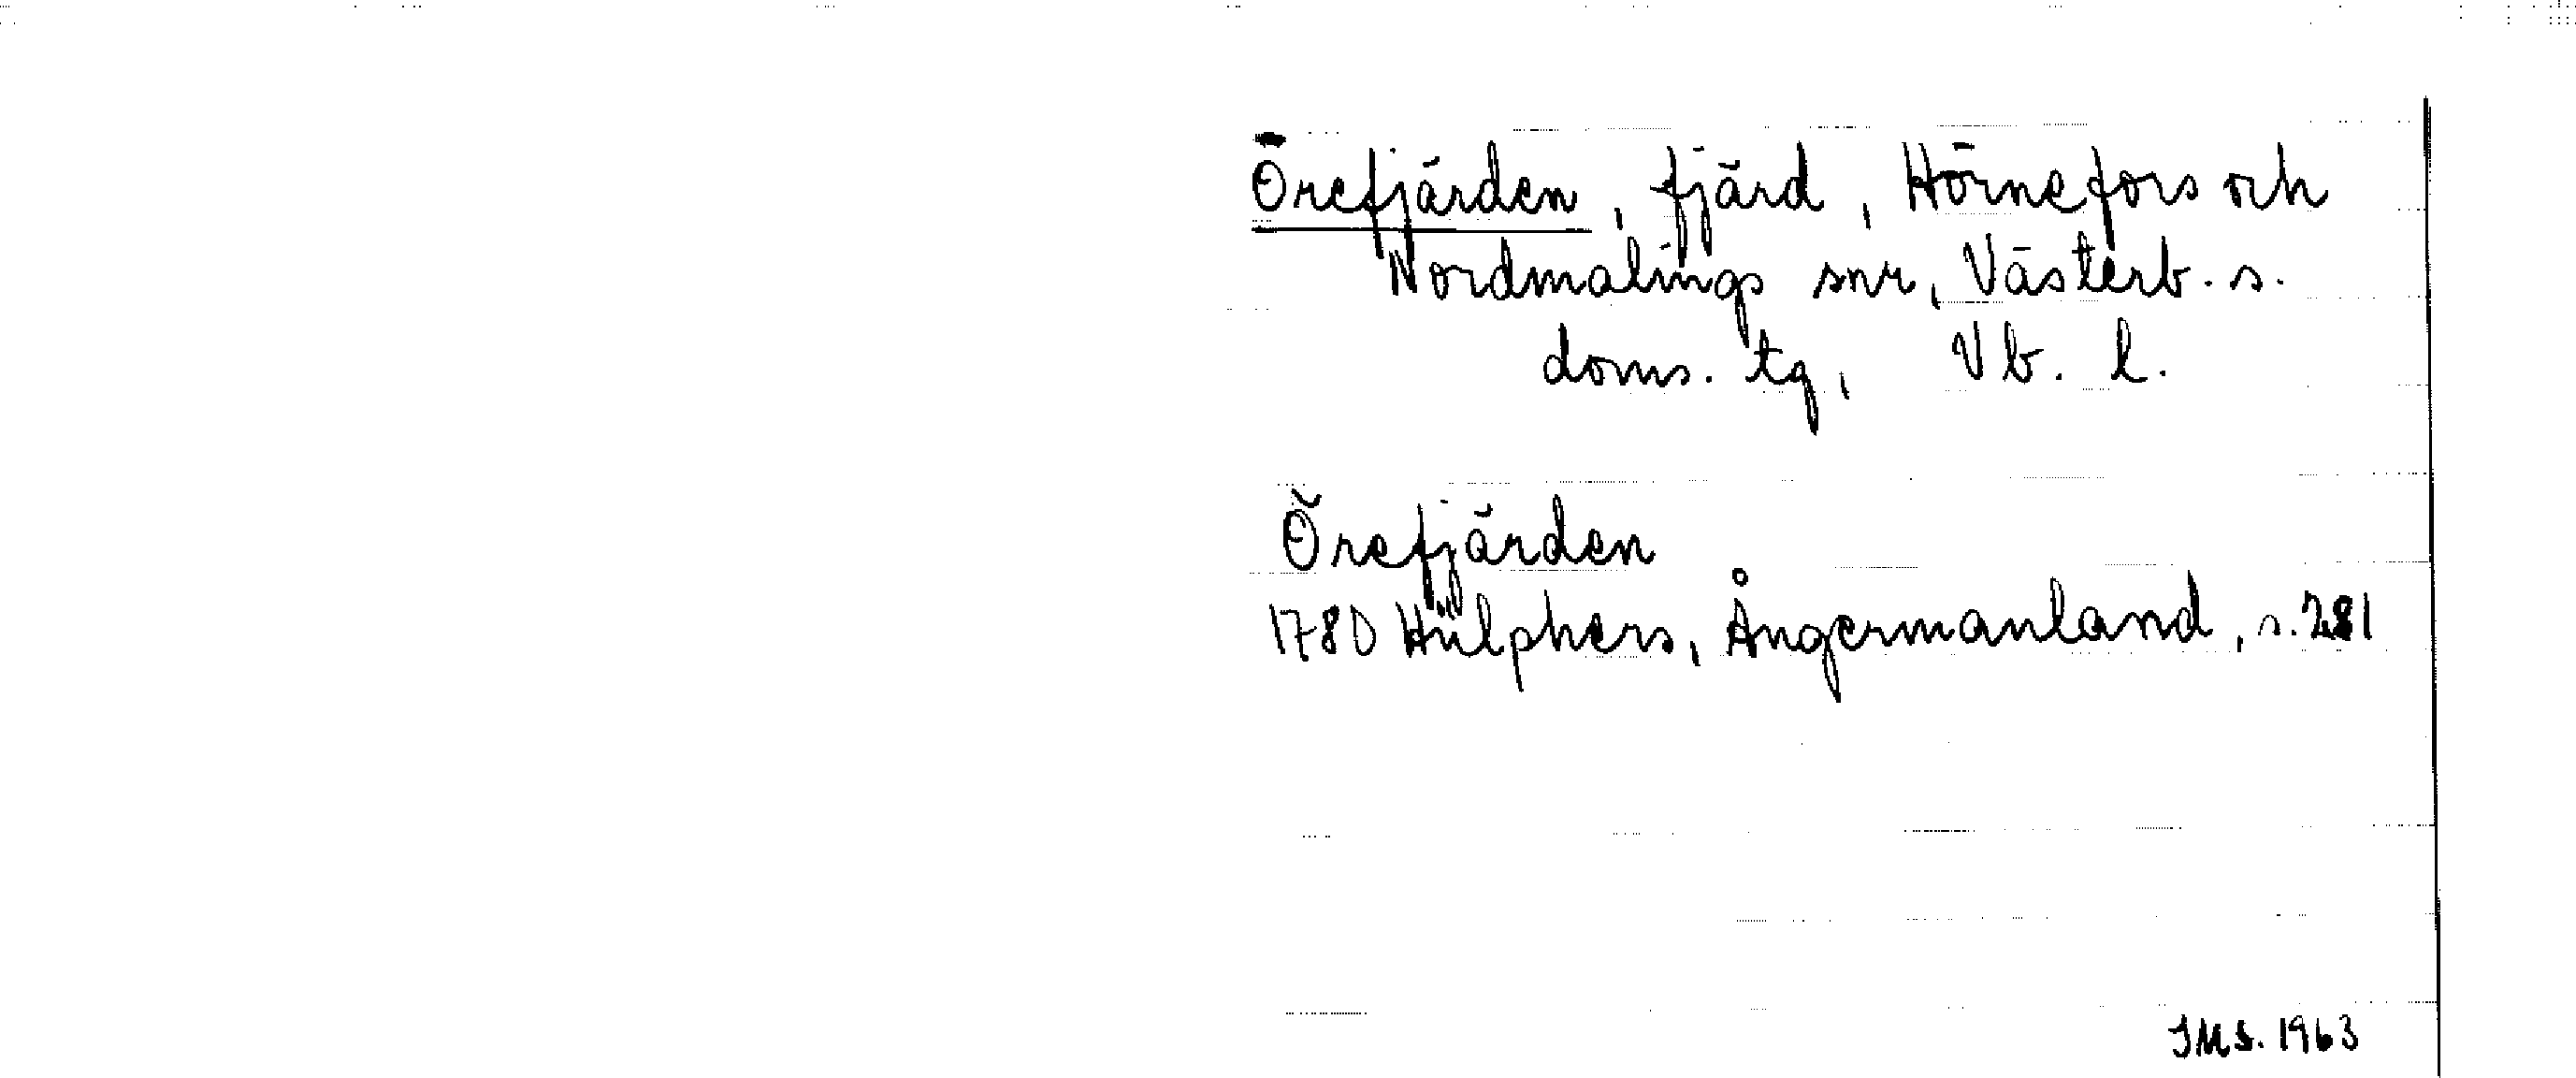 Örefjärden, fjärd, Hörnefors och
Nordmalings snr, Västerb. s.
doms. tg, Vb. l.
Örefjärden
1780 Hülphers, Ångermanland, s. 281
IMS. 1963